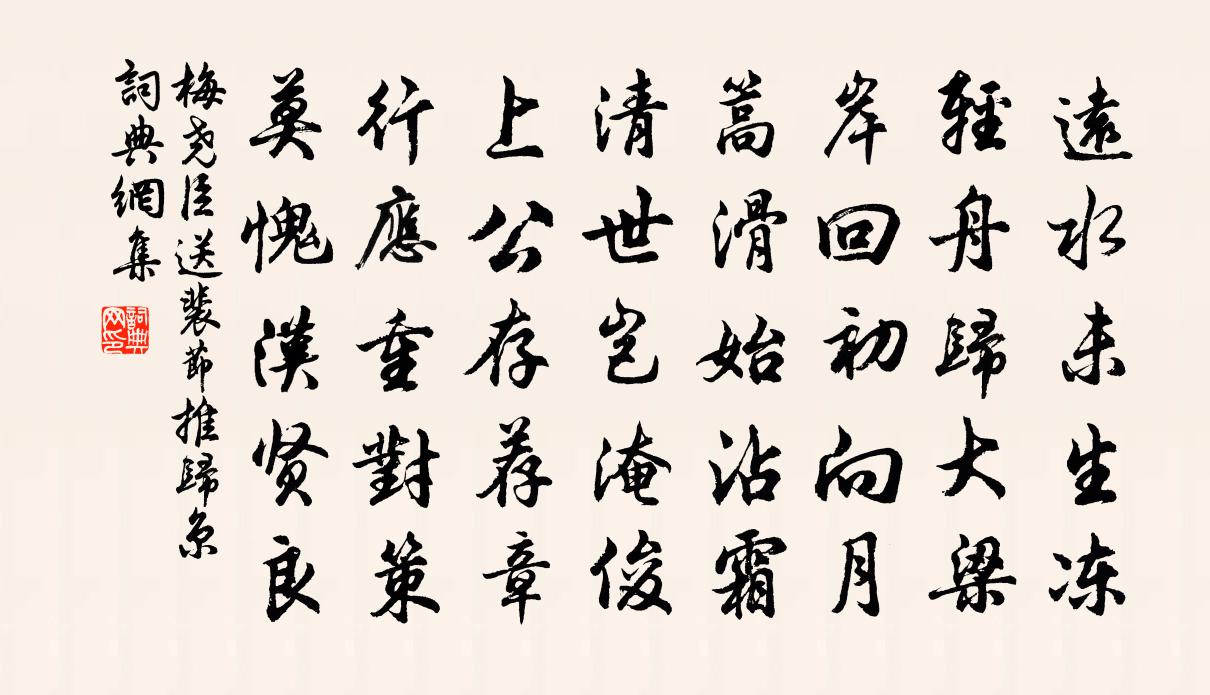 遠水未生冻
輕舟歸大梁
岸回初向月
篙滑始沾霜
清世岂淹俊
上公存荐章
行應重對策
莫愧漢贤良
梅尧臣送裴節推歸京
詞典網集
詞典网印